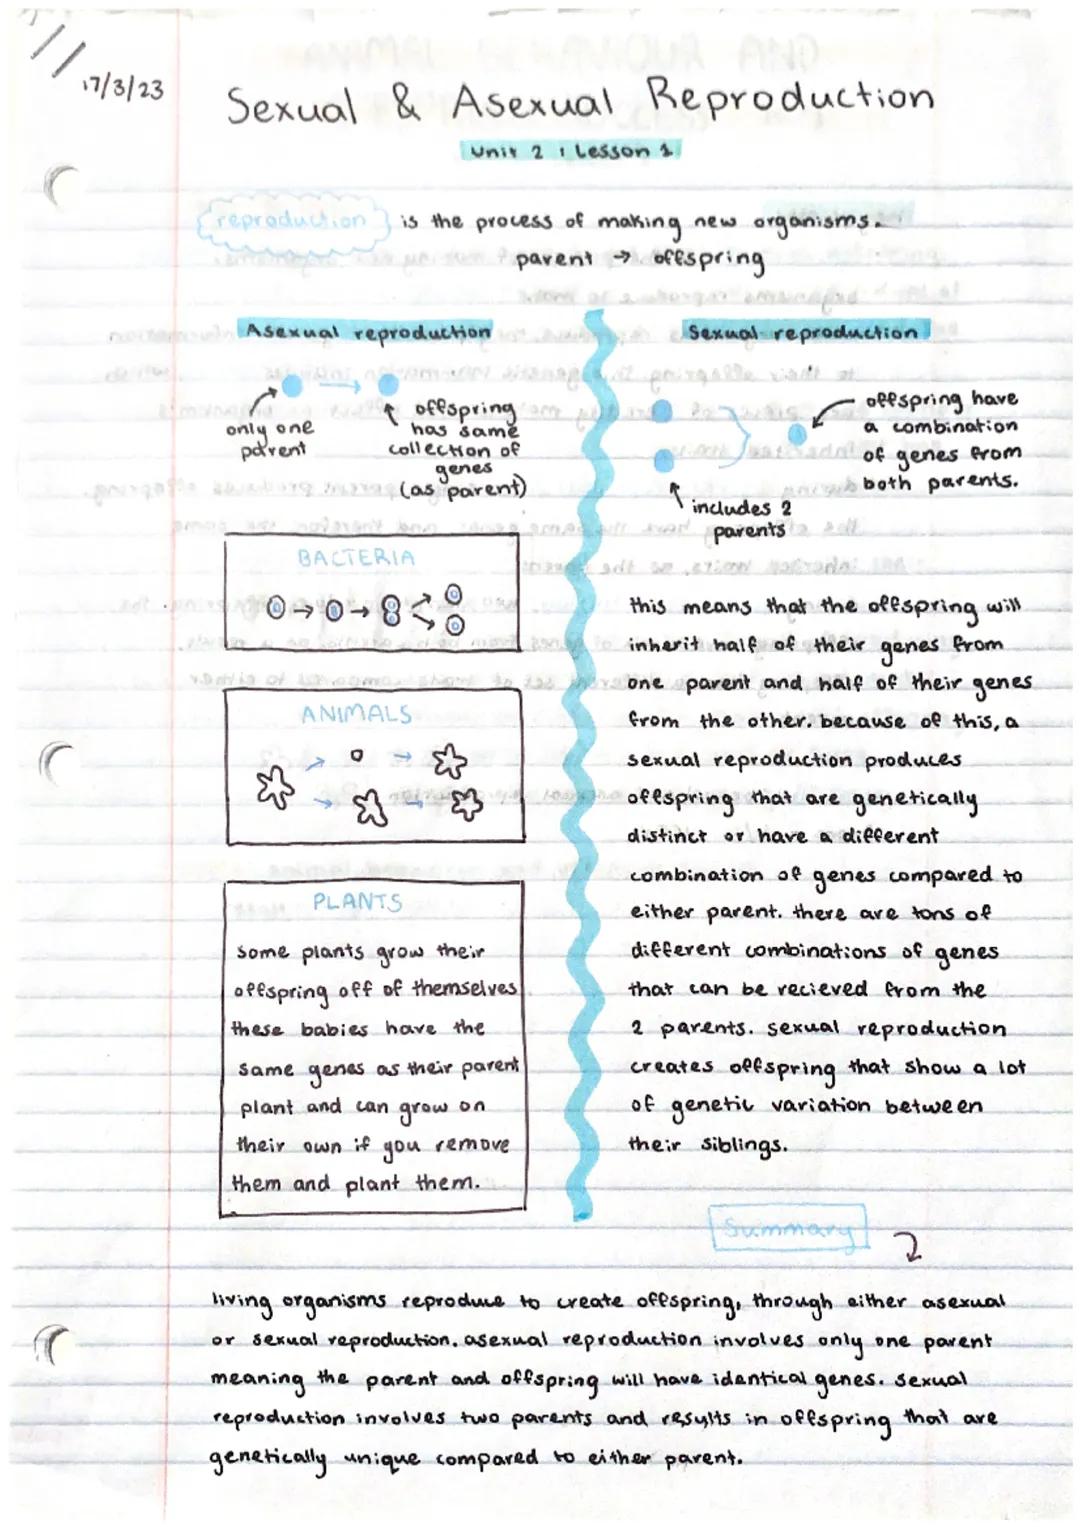 17/3/23
Sexual & Asexual Reproduction
Unit 2 : Lesson 1
reproduction is the process of making new organisms.
parent → offspring
Asexual reproduction
only one
parent
offspring
has same
collection of
genes
(as parent)
BACTERIA
ANIMALS
PLANTS
some plants grow their
offspring off of themselves
these babies have the
same genes as their parent
plant and can grow on
their own if you remove
them and plant them.
Sexual reproduction
offspring have
a combination
of genes from
both parents.
includes 2
parents
this means that the offspring will
inherit half of their genes from
one parent and half of their genes
from the other. because of this, a
sexual reproduction produces
offspring that are genetically
distinct or have a different
combination of genes compared to
either parent. there are tons of
different combinations of genes
that can be recieved from the
2 parents. sexual reproduction
creates offspring that show a lot
of genetic variation between
their siblings.
Summary
living organisms reproduce to create offspring, through either asexual
or sexual reproduction. asexual reproduction involves only one parent
meaning the parent and offspring will have identical genes. sexual
reproduction involves two parents and results in offspring that are
genetically unique compared to either parent.